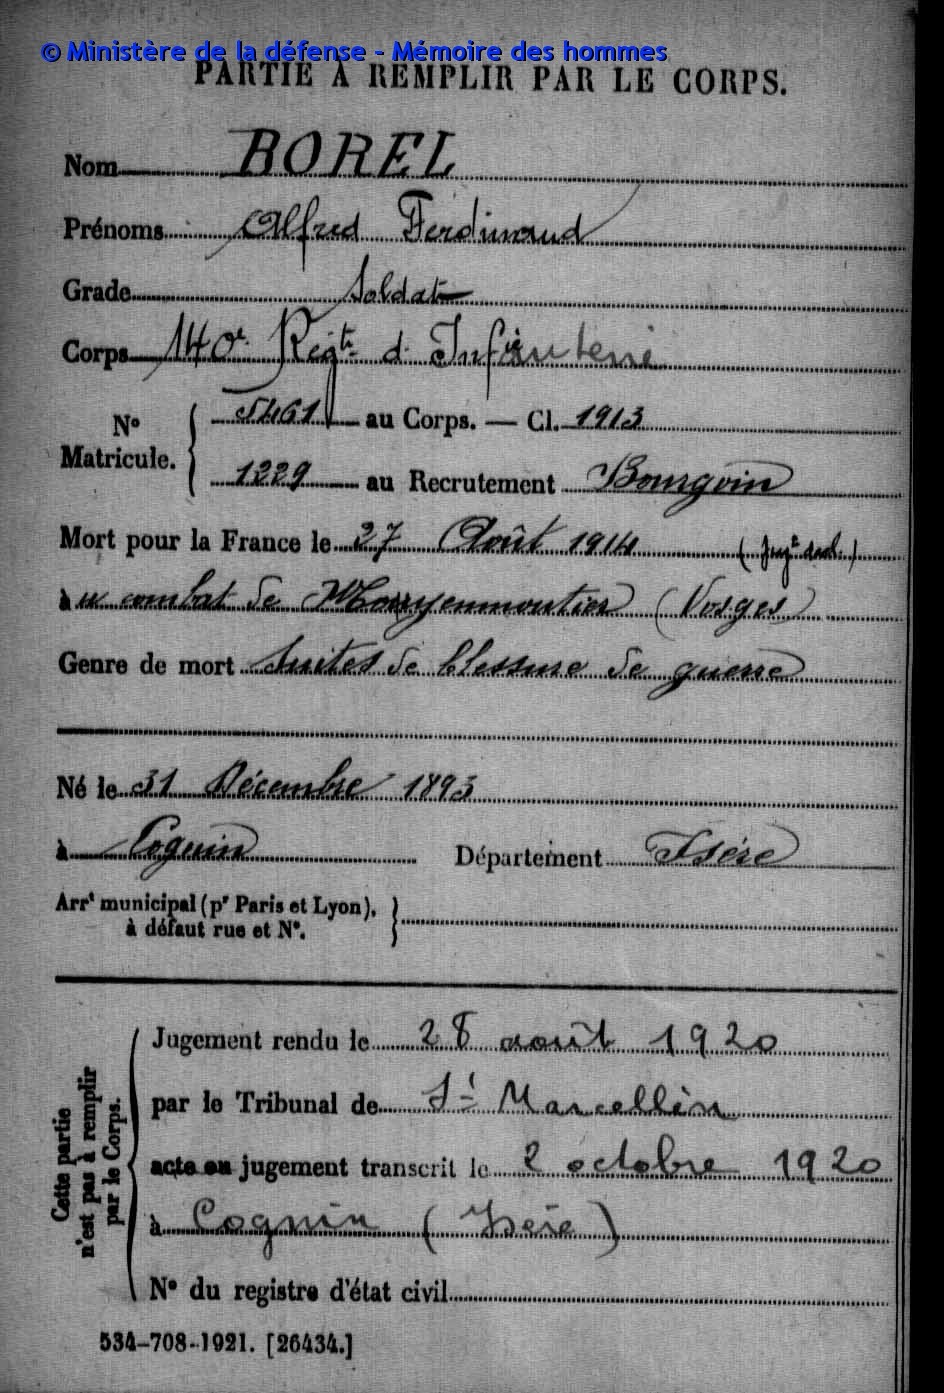 © Ministère de la défense - Mémoire des hommes
PARTIE À REMPLIR PAR LE CORPS.
Nom BOREL
Prénoms Alfred Ferdinand
Grade Soldat
Corps 140e Régt d'Infanterie
No Matricule. { 5461 au Corps. — Cl. 1913
1229 au Recrutement Bourgoin
Mort pour la France le 27 Août 1914 (Jugt décl.)
à u combat de Moyenmoutier (Vosges)
Genre de mort Suites de blessure de guerre
Né le 31 Décembre 1893
à Cognin Département Isère
Arrt municipal (pr Paris et Lyon),
à défaut rue et No.
Cette partie
n'est pas à remplir
par le Corps.
Jugement rendu le 28 août 1920
par le Tribunal de St Marcellin
acte ou jugement transcrit le 2 octobre 1920
à Cognin (Isère)
No du registre d'état civil
534-708-1921. [26434.]